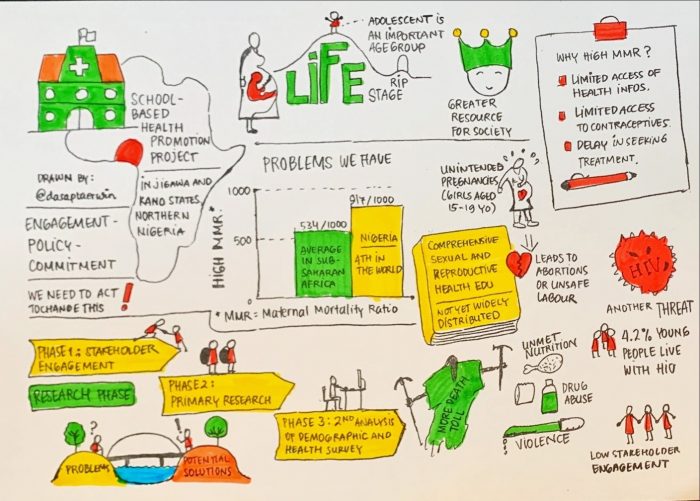 SCHOOL-
BASED
HEALTH
PROMOTION
PROJECT
IN JIGAWA AND
KANO STATES,
NORTHERN
NIGERIA
DRAWN BY:
@dasaptaerwin
ENGAGEMENT-
POLICY-
COMMITMENT
WE NEED TO ACT
TO CHANGE THIS !
LiFE
ADOLESCENT IS
AN IMPORTANT
AGE GROUP
RIP
STAGE
GREATER
RESOURCE
FOR SOCIETY
WHY HIGH MMR?
LIMITED ACCESS OF
HEALTH INFOS.
LIMITED ACCESS
TO CONTRACEPTIVES.
DELAY IN SEEKING
TREATMENT.
PROBLEMS WE HAVE
HIGH MMR*
1000
500
534/1000
AVERAGE
IN SUB-
SAHARAN
AFRICA
917/1000
NIGERIA
4TH IN THE
WORLD
* MMR = Maternal Mortality Ratio
UNINTENDED
PREGNANCIES
(GIRLS AGED
15-19 YO)
COMPREHENSIVE
SEXUAL AND
REPRODUCTIVE
HEALTH EDU
NOT YET WIDELY
DISTRIBUTED
LEADS TO
ABORTIONS
OR UNSAFE
LABOUR
HIV
ANOTHER THREAT
4.2% YOUNG
PEOPLE LIVE
WITH HIV
PHASE 1: STAKEHOLDER
ENGAGEMENT
RESEARCH PHASE
PHASE 2:
PRIMARY RESEARCH
PHASE 3: 2ND ANALYSIS
OF DEMOGRAPHIC AND
HEALTH SURVEY
?
!
PROBLEMS
POTENTIAL
SOLUTIONS
MORE DEATH
TOLL
UNMET
NUTRITION
DRUG
ABUSE
VIOLENCE
LOW STAKEHOLDER
ENGAGEMENT